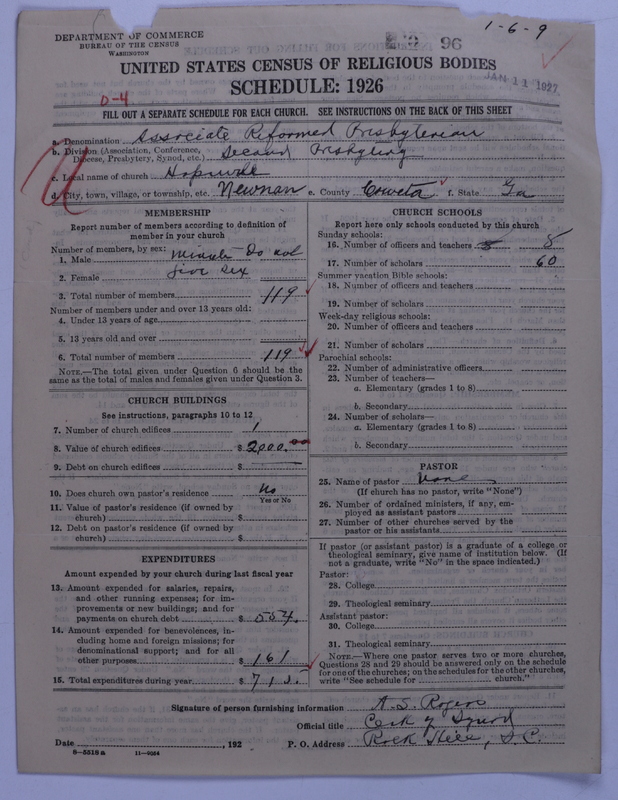 1-6-9
DEPARTMENT OF COMMERCE
BUREAU OF THE CENSUS
WASHINGTON
96
UNITED STATES CENSUS OF RELIGIOUS BODIES
JAN 11 1927
SCHEDULE: 1926
D-4
FILL OUT A SEPARATE SCHEDULE FOR EACH CHURCH. SEE INSTRUCTIONS ON THE BACK OF THIS SHEET
a. Denomination Associate Reformed Presbyterian
b. Division (Association, Conference, Diocese, Presbytery, Synod, etc.) Second Presbytery
c. Local name of church
d. City, town, village, or township, etc. Newnan e. County Coweta f. State Ga
MEMBERSHIP
Report number of members according to definition of
member in your church
Number of members, by sex:
1. Male Minutes Do not
2. Female give sex
3. Total number of members 119
Number of members under and over 13 years old:
4. Under 13 years of age
5. 13 years old and over
6. Total number of members 119
NOTE.—The total given under Question 6 should be
same as the total of males and females given under Question 3.
CHURCH BUILDINGS
See instructions, paragraphs 10 to 12
7. Number of church edifices 1
8. Value of church edifices $ 2000.00
9. Debt on church edifices $
10. Does church own pastor's residence No
Yes or No
11. Value of pastor's residence (if owned by
church) $
12. Debt on pastor's residence (if owned by
church) $
EXPENDITURES
Amount expended by your church during last fiscal year
13. Amount expended for salaries, repairs,
and other running expenses; for im-
provements or new buildings; and for
payments on church debt $ 554.
14. Amount expended for benevolences, in-
cluding home and foreign missions; for
denominational support; and for all
other purposes $ 161
15. Total expenditures during year $ 715.
CHURCH SCHOOLS
Report here only schools conducted by this church
Sunday schools:
16. Number of officers and teachers 8
17. Number of scholars 60
Summer vacation Bible schools:
18. Number of officers and teachers
19. Number of scholars
Week-day religious schools:
20. Number of officers and teachers
21. Number of scholars
Parochial schools:
22. Number of administrative officers
23. Number of teachers—
a. Elementary (grades 1 to 8)
b. Secondary
24. Number of scholars—
a. Elementary (grades 1 to 8)
b. Secondary
PASTOR
25. Name of pastor None
(If church has no pastor, write "None")
26. Number of ordained ministers, if any, em-
ployed as assistant pastors
27. Number of other churches served by the
pastor or his assistants
If pastor (or assistant pastor) is a graduate of a college or
theological seminary, give name of institution below. (If
not a graduate, write "No" in the space indicated.)
Pastor:
28. College
29. Theological seminary
Assistant pastor:
30. College
31. Theological seminary
NOTE.—Where one pastor serves two or more churches,
Questions 28 and 29 should be answered only on the schedule
for one of the churches; on the schedules for the other churches,
write "See schedule for church."
Signature of person furnishing information A. S. Rogers
Official title Clerk of Synod
Date , 192 P. O. Address Rock Hill, S.C.
8—5518 a 11—9054